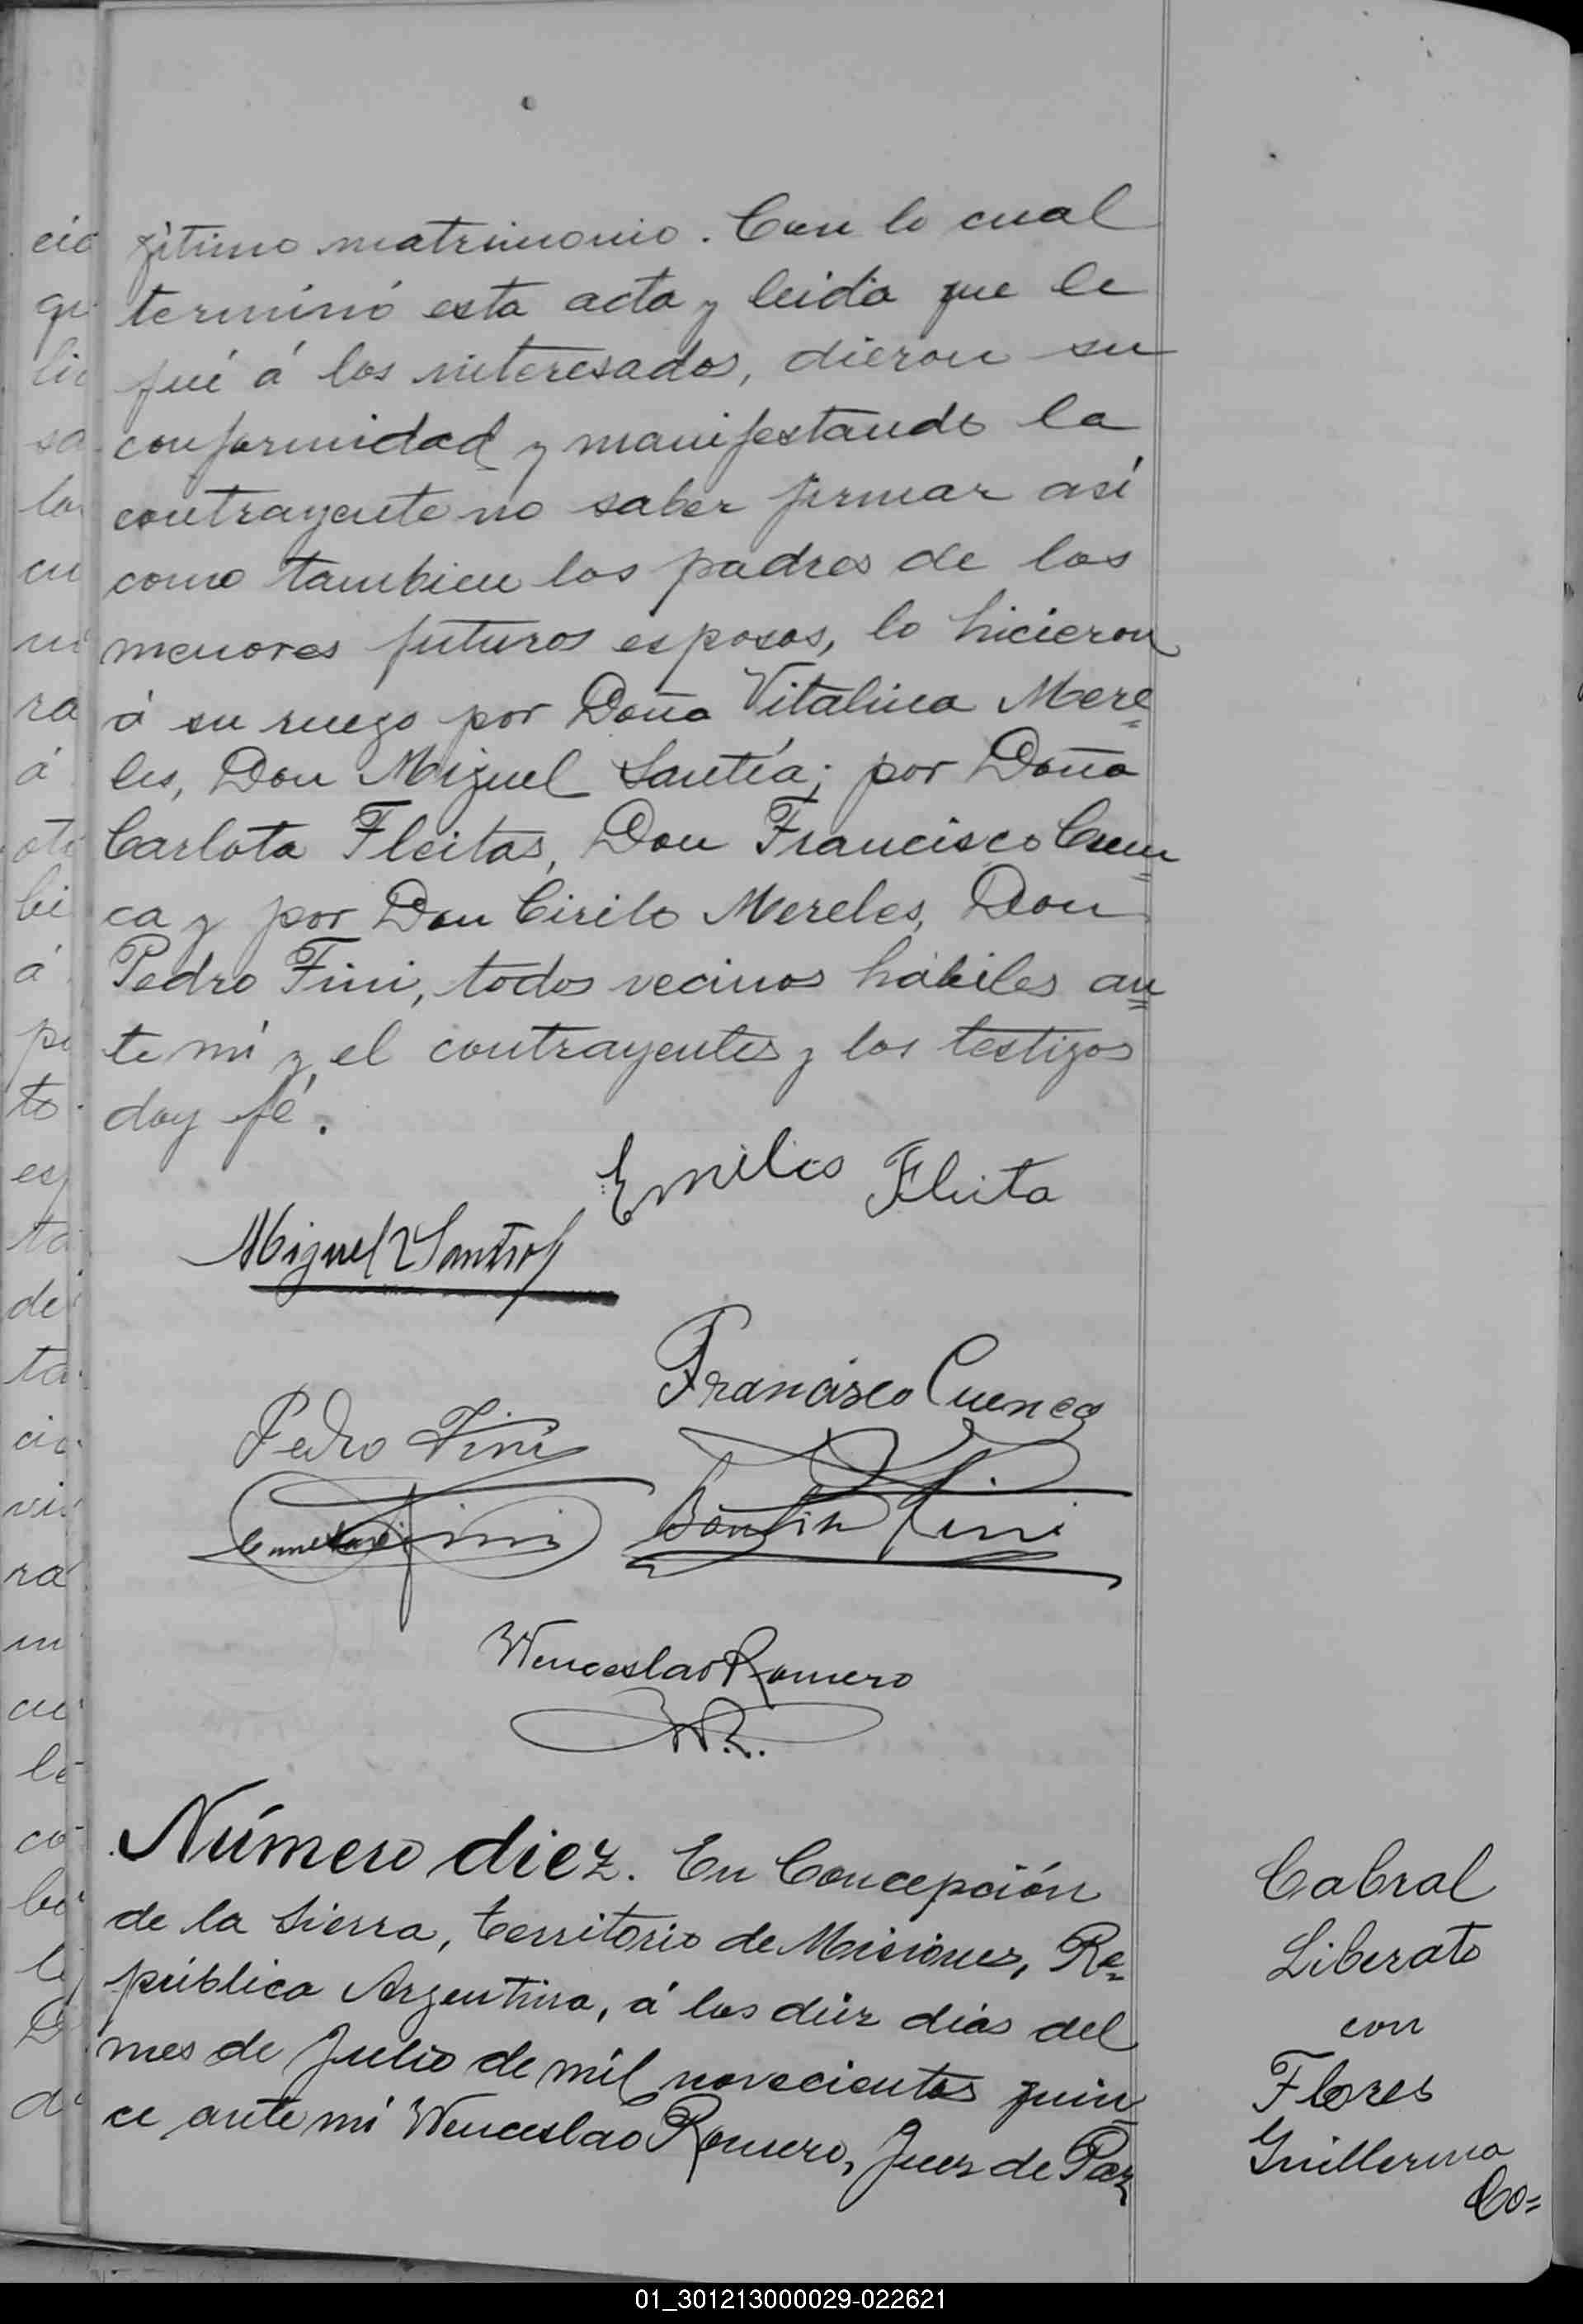 gítimo matrimonio. Con lo cual
terminó esta acta y leida que le
fué á los interesados, dieron su
conformidad y manifestando la
contrayente no saber firmar así
como tambien los padres de los
menores futuros esposos, lo hicieron
á su ruego por Doña Vitalina Mere=
les, Don Miguel Santía; por Doña
Carlota Fleitas, Don Francisco Cuen=
ca y por Don Cirilo Mereles, Don
Pedro Fini, todos vecinos hábiles an=
te mí y el contrayentes y los testigos
doy fé.
Emilio Fleita
Miguel Santia
Francisco Cuenca
Pedro Fini
Fini
Fini
Wenceslao Romero
W.R.
Número diez. En Concepción
de la Sierra, territorio de Misiones, Re=
pública Argentina, á los diez dias del
mes de Julio de mil novecientos quin
ce ante mí Wenceslao Romero, Juez de Paz
Cabral
Liberato
con
Flores
Guillerma
Co=
eio
qu
lic
sa
cu
ra
á
bi
á
to
ta
de
ta
cio
vi
ra
le
co
01_301213000029-022621